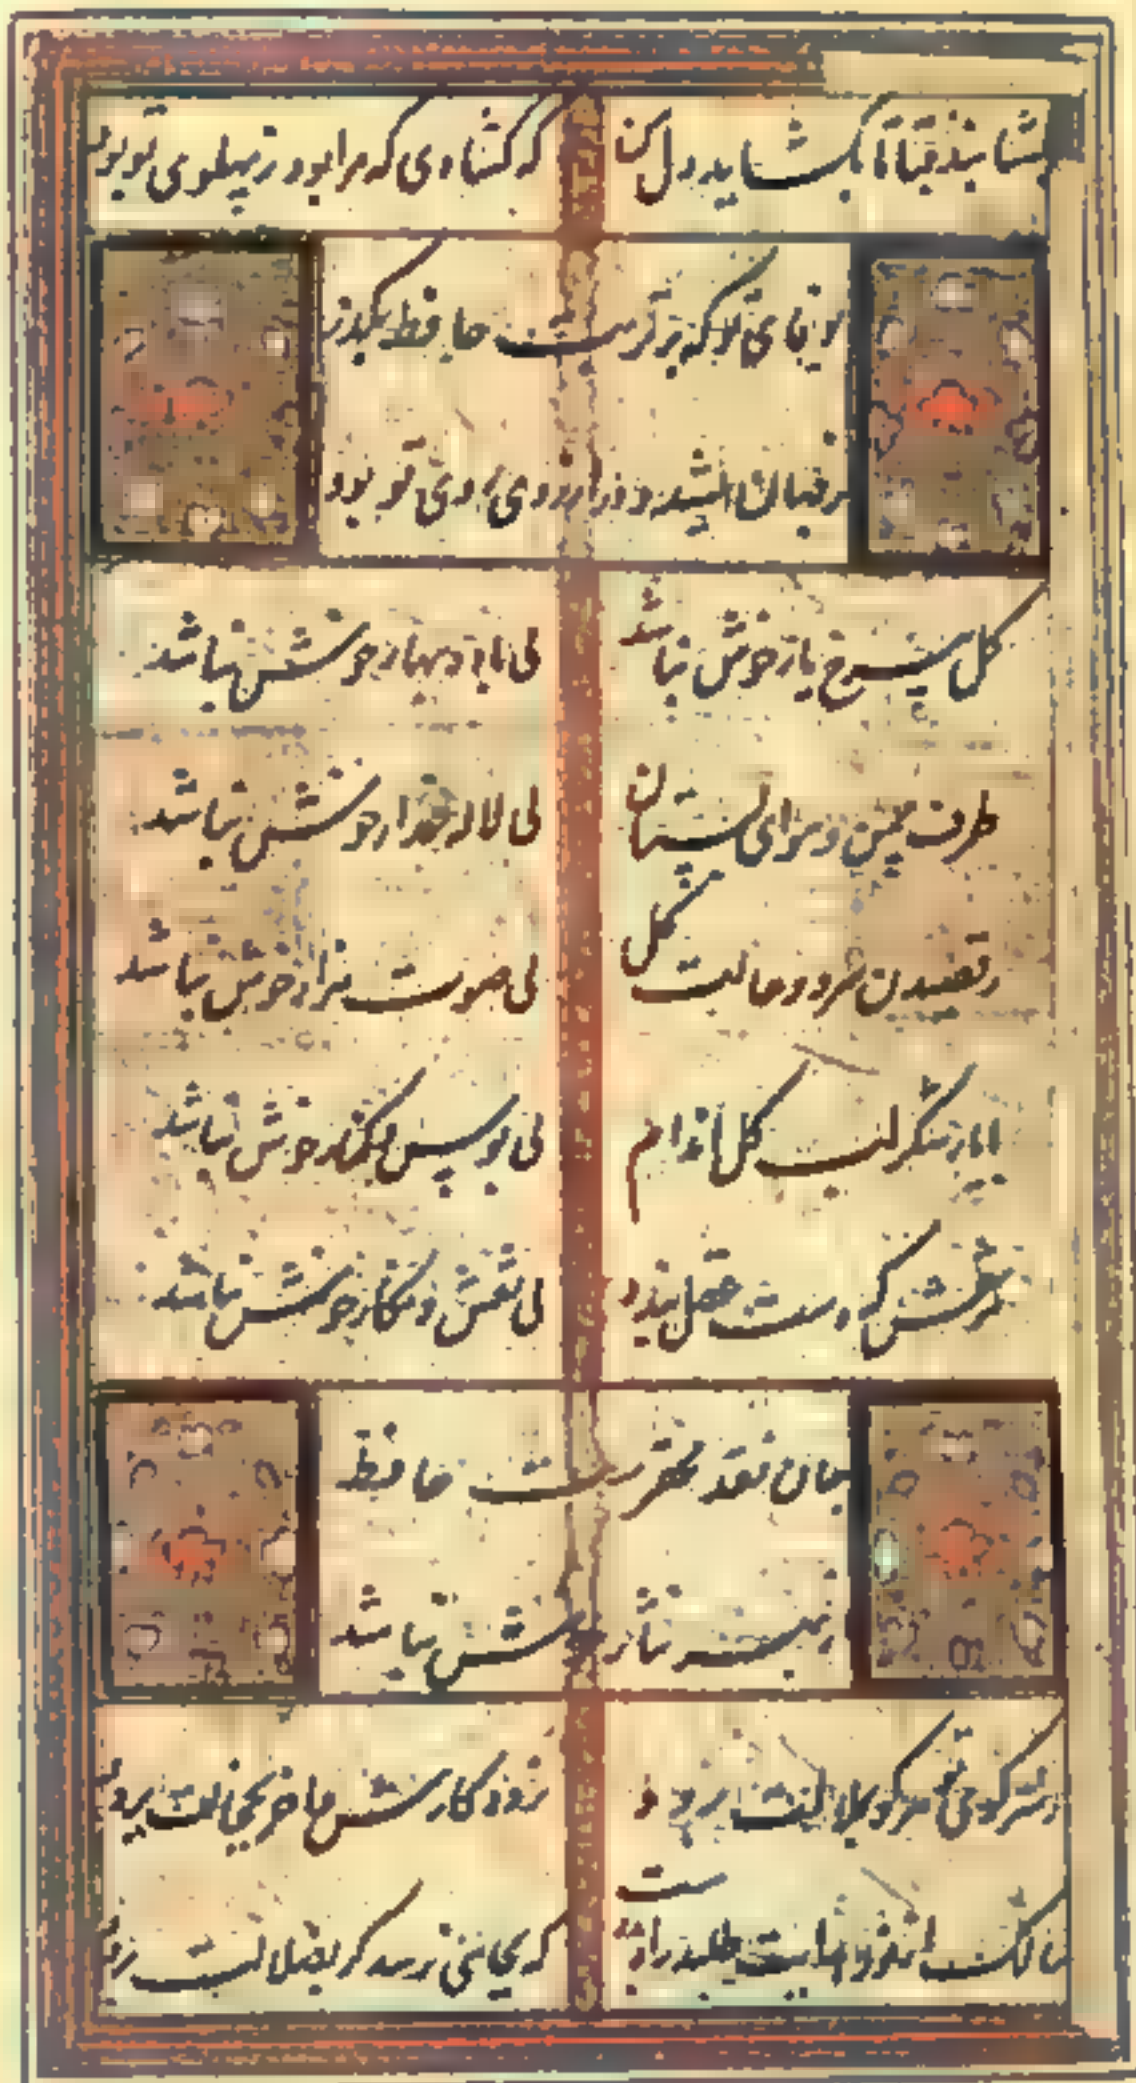 بکشا بند قبا تا بکشاید دل من
که کشادی که مرا بود ز پهلوی تو بود
بوفای تو که بر تربت حافظ بگذر
کز جهان میشد و در آرزوی روی تو بود
کل بی رخ یار خوش نباشد
بی باده بهار خوش نباشد
طرف چمن و هوای بستان
بی لاله عذار خوش نباشد
رقصیدن سرو و حالت کل
بی صوت هزار خوش نباشد
با یار شکر لب کل اندام
بی بوس و کنار خوش نباشد
هر نقش که دست عقل بندد
بی نقش و نکار خوش نباشد
جان نقد محقرست حافظ
از بهر نثار خوش نباشد
از سر کوی تو هر کو بملالت برود
نرود کارش و آخر بخجالت برود
سالک از نور هدایت طلبد راه بدوست
که بجایی نرسد کر بضلالت برود